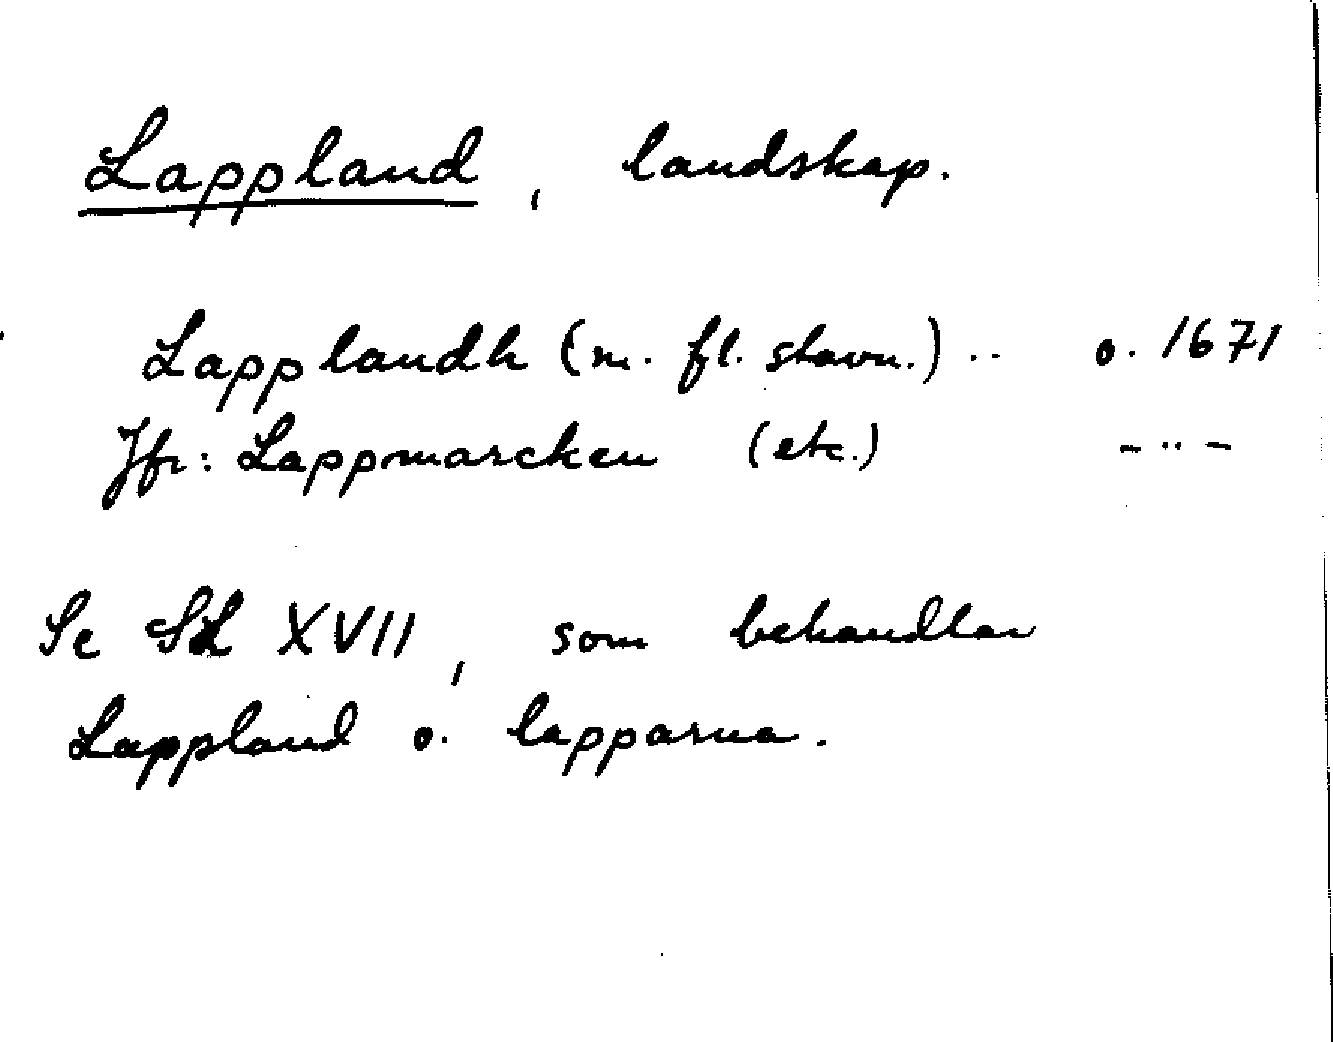 Lappland, landskap.
Lapplandh (m. fl. stavn.) .. o. 1671
Jfr: Lappmarcken (etc.) - ·· -
Se SL XVII, som behandlar
Lappland o. lapparna.